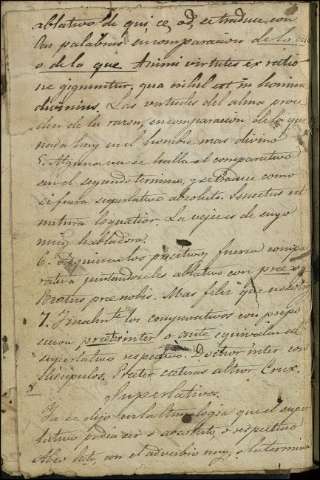 ablativo de qui, ce, od, se traduce con
las palabras en comparacion de lo
o de la que. Animi virtutes ex ratio
ne gignuntur, qua nihil est in homine
divinius. Las virtudes del alma proce
den de la razon, en comparacion de la que
nada hay en el hombre mas divino
5. Alguna vez se halla el comparativo
sin el segundo termino, y se traduce como
si fuera superlativo absoluto. Senectus est
natura loquatior. La vejez es de suyo
muy habladora.
6. los positivos fuerza compa
rativa juntandoles ablativo con prae
Beatus prae nobis. Mas feliz que
7. Finalmente los comparativos con prepo
sicion inter o ante equivalen al
superlativo respectivo. Doctior inter con
discipulos. Prater caeteras altior. Crux.
Superlativos.
Ya se dijo en la que el super
lativo podia ser o absoluto, o respectivo
con el adverbio muy, o la termina